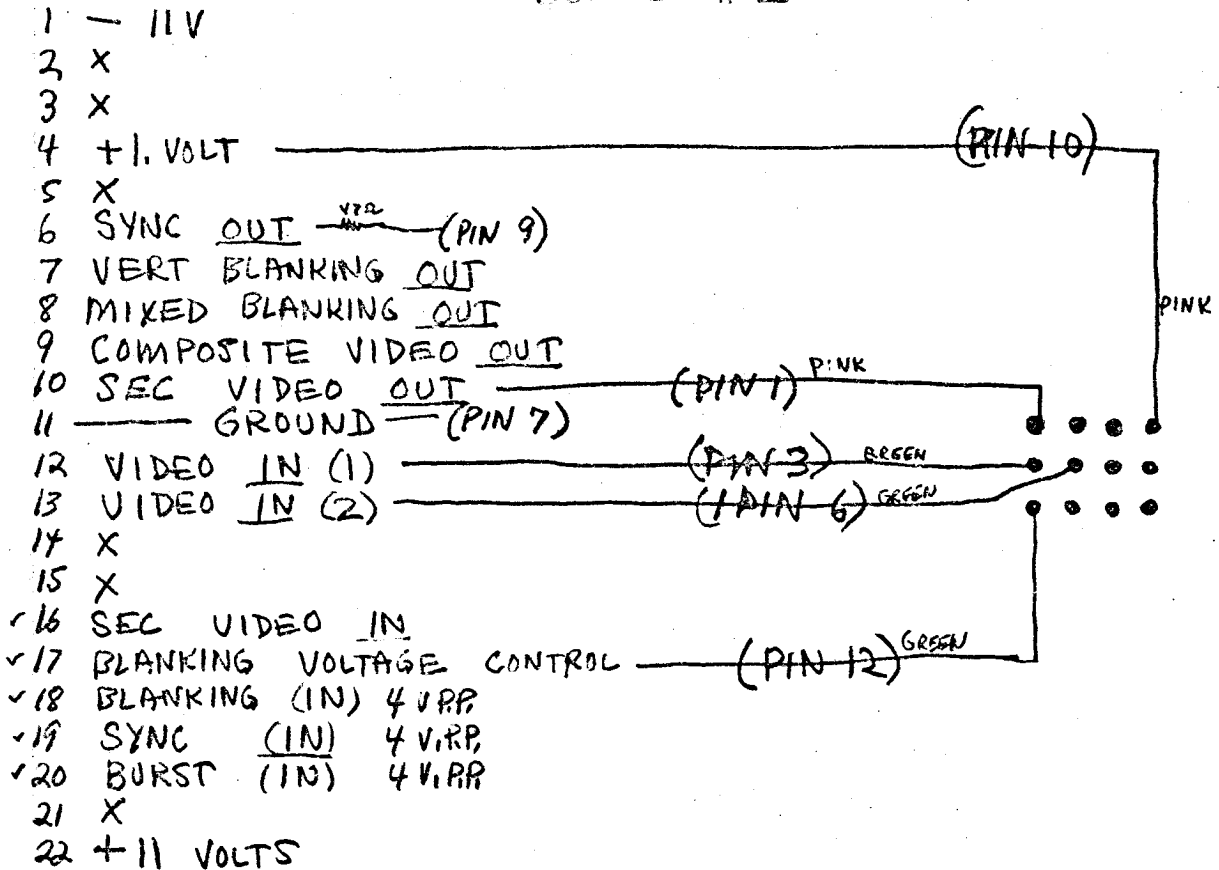 1 — 11V
2 X
3 X
4 +1. VOLT (PIN 10)
5 X
6 SYNC OUT (PIN 9)
7 VERT BLANKING OUT
8 MIXED BLANKING OUT
PINK
9 COMPOSITE VIDEO OUT
10 SEC VIDEO OUT (PIN 1) PINK
11 — GROUND — (PIN 7)
12 VIDEO IN (1) (PIN 3) GREEN
13 VIDEO IN (2) (PIN 6) GREEN
14 X
15 X
✓16 SEC VIDEO IN
✓17 BLANKING VOLTAGE CONTROL (PIN 12) GREEN
✓18 BLANKING (IN) 4 V.P.P.
✓19 SYNC (IN) 4 V.P.P.
✓20 BURST (IN) 4 V.P.P.
21 X
22 +11 VOLTS